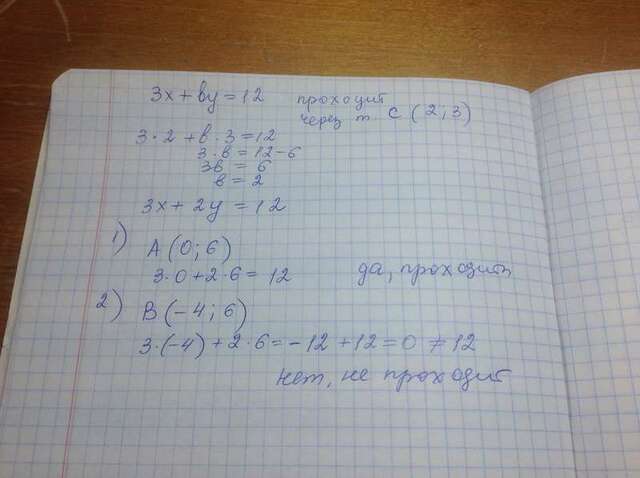 3x + by = 12 проходит
через т. C (2; 3)
3·2 + b·3 = 12
3·b = 12-6
3b = 6
b = 2
3x + 2y = 12
1) A (0; 6)
3·0 + 2·6 = 12 да, проходит
2) B (-4; 6)
3·(-4) + 2·6 = -12 + 12 = 0 ≠ 12
нет, не проходит